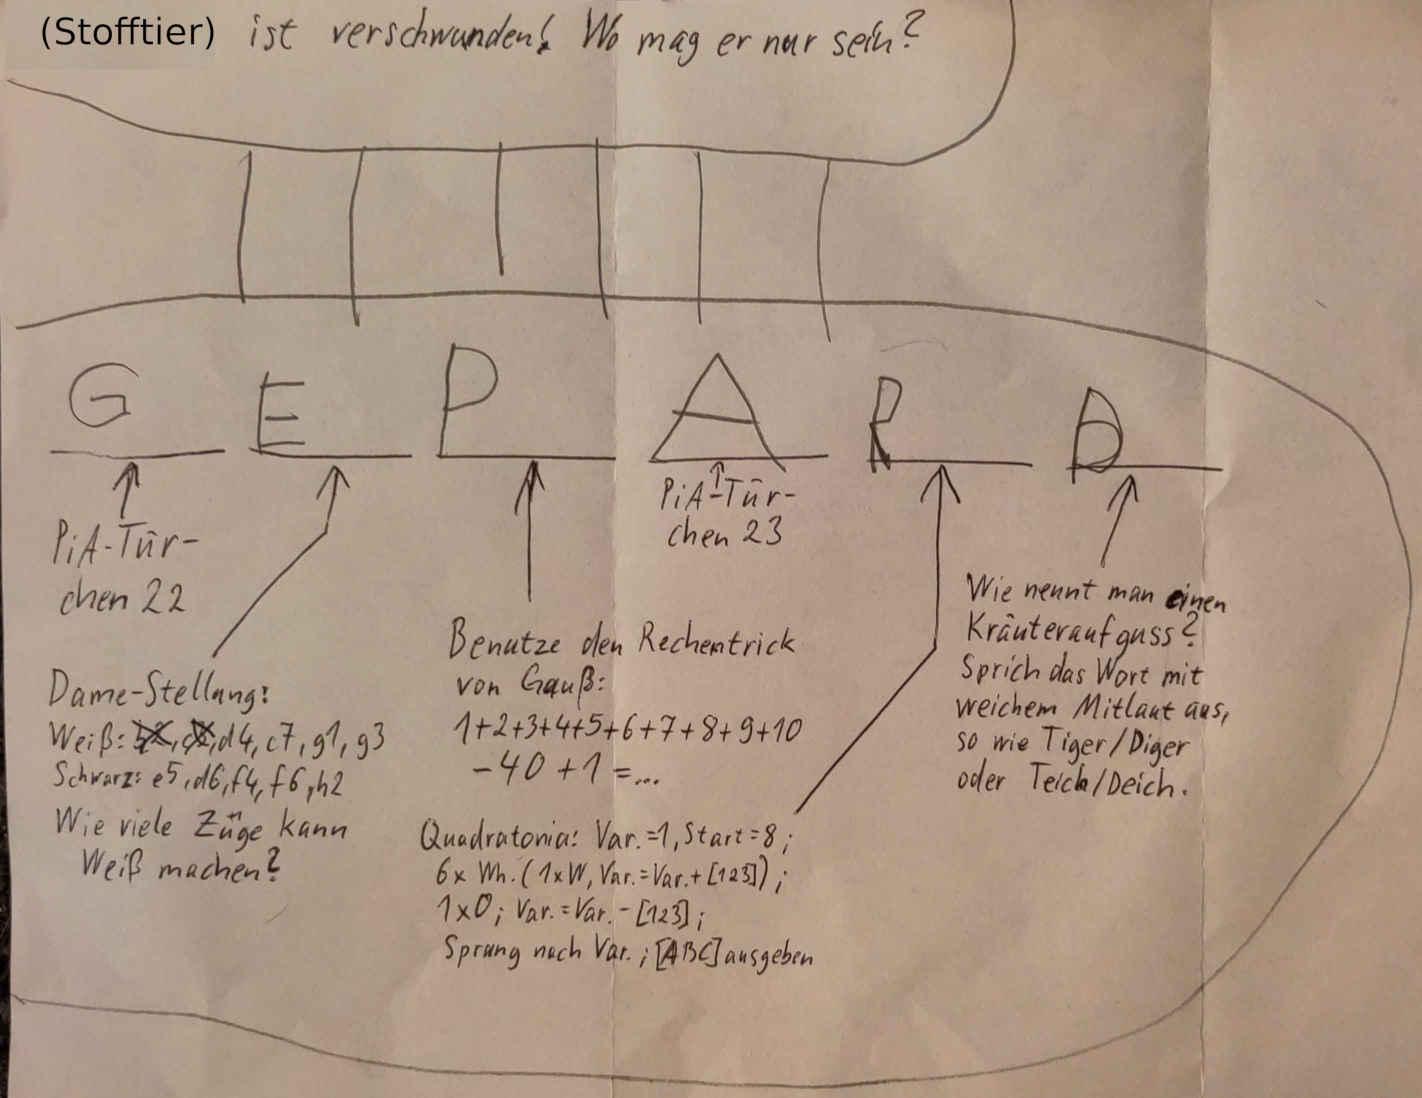 (Stofftier) ist verschwunden! Wo mag er nur sein?
G E P A R D
PiA-Tür-
chen 22
PiA-Tür-
chen 23
Dame-Stellung:
Weiß: d4, c7, g1, g3
Schwarz: e5, d6, f4, f6, h2
Wie viele Züge kann
Weiß machen?
Benutze den Rechentrick
von Gauß:
1+2+3+4+5+6+7+8+9+10
-40+1=...
Quadratonia: Var.=1, Start=8;
6x Wh. (1xW, Var.=Var.+[123]);
1xO; Var.=Var.-[123];
Sprung nach Var.; [ABC] ausgeben
Wie nennt man einen
Kräuteraufguss?
Sprich das Wort mit
weichem Mitlaut aus,
so wie Tiger/Diger
oder Teich/Deich.